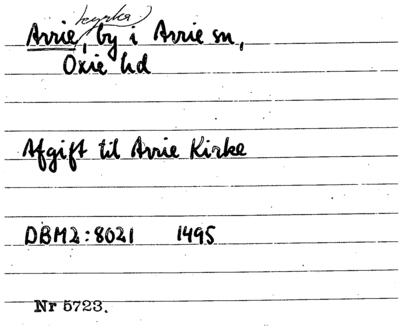 kyrka
Arrie, by i Arrie sn,
Oxie hd
Afgift til Arrie Kirke
DBM2:8021 1495
Nr 5723.